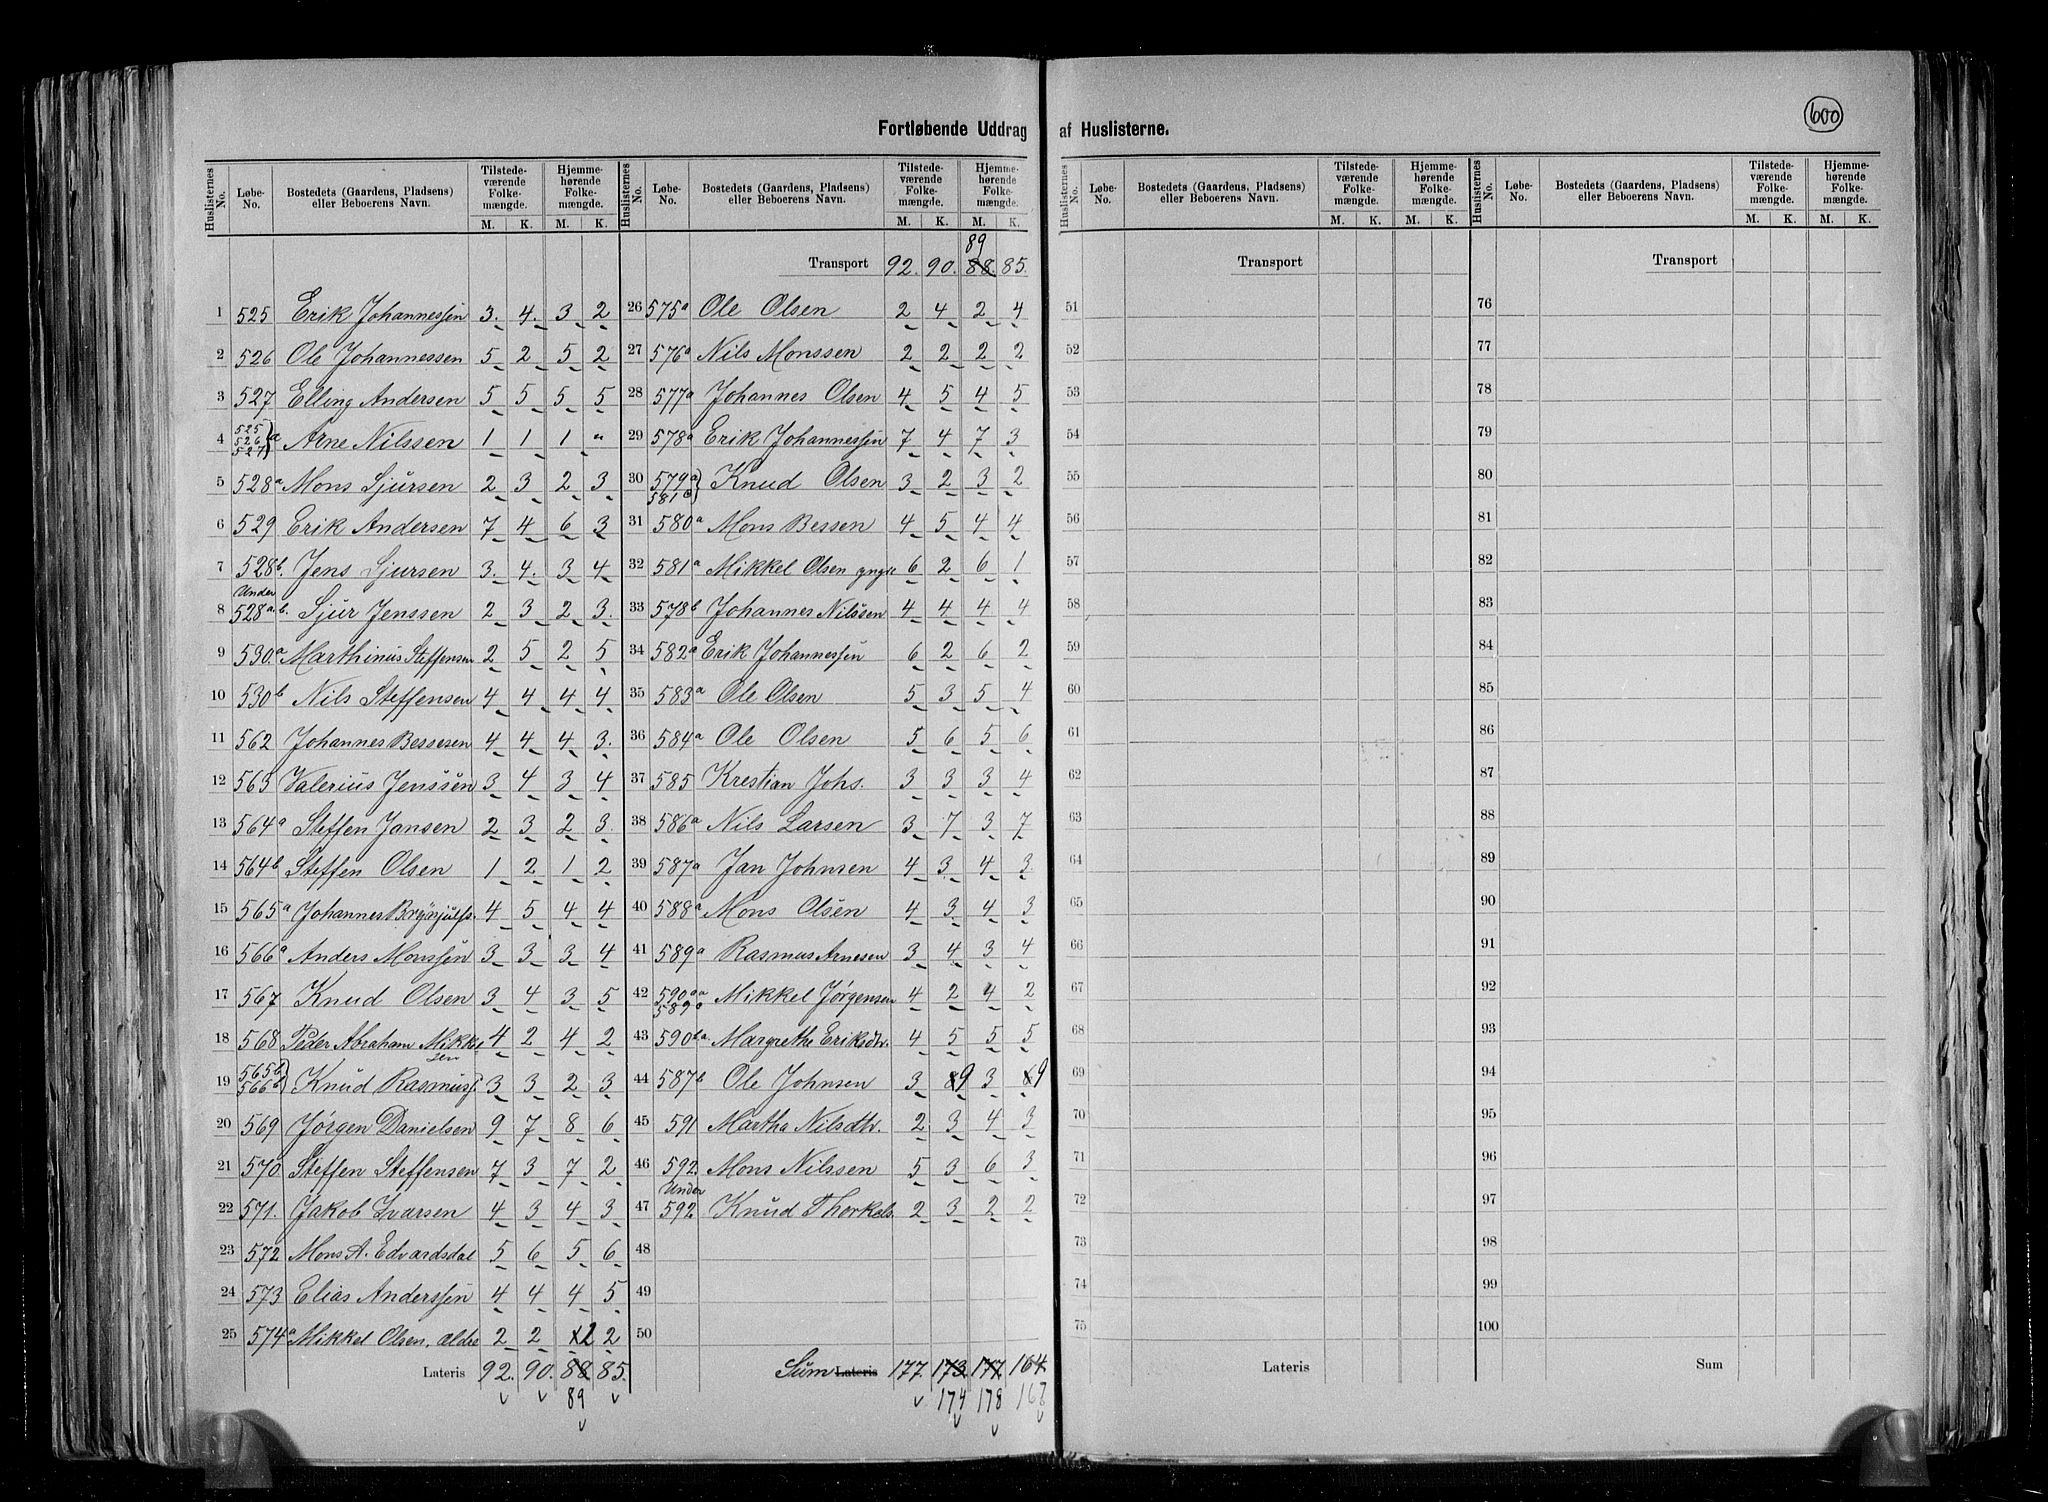 600
Fortløbende Uddrag af Huslisterne.
Huslisternes No. Løbe-No. Bostedets (Gaardens, Pladsens) eller Beboerens Navn. Tilstedeværende Folkemængde. M. K. Hjemmehørende Folkemængde. M. K.
1 525 Erik Johannessen 3. 4. 3 2
2 526 Ole Johannessen 5 2 5 2
3 527 Elling Andersen 5 5 5 5
4 525 526 527 a Arne Nilssen 1 1 1 "
5 528a Mons Sjursen 2 3 2 3
6 529 Erik Andersen 7 4 6 3
7 528b. Jens Sjursen 3. 4. 3 4
8 Under 528a.b. Sjur Jenssen 2 3 2 3.
9 530.a Marthinus Steffensen 2 5 2 5
10 530b Nils Steffensen 4 4 4 4
11 562 Johannes Bessesen 4 4 4 3.
12 563 Valerius Jenssen 3 4 3 4
13 564a Steffen Jansen 2 3 2 3.
14 564b Steffen Olsen 1 2 1 2
15 565a Johannes Brynjulfs. 4 5 4 4
16 566a Anders Monssen 3 3 3 4
17 567 Knud Olsen 3 4 3 5
18 568 Peder Abraham Mikkelsen 4 2 4 2
19 565b 566b Knud Rasmuss. 3 3 2 3
20 569 Jørgen Danielsen 9 7 8 6
21 570 Steffen Steffensen 7 3 7 2
22 571. Jakob Ivarsen 4 3 4 3
23 572 Mons A. Edvardsdal 5 6 5 6
24 573 Elias Anderssen 4 4 4 5
25 574a Mikkel Olsen, ældre 2 2 2 2
Lateris 92. 90. 88 85.
89
Huslisternes No. Løbe-No. Bostedets (Gaardens, Pladsens) eller Beboerens Navn. Tilstedeværende Folkemængde. M. K. Hjemmehørende Folkemængde. M. K.
89
Transport 92. 90. 88. 85.
26 575a Ole Olsen 2 4 2 4
27 576a Nils Monssen 2 2 2 2
28 577a Johannes Olsen 4 5 4 5
29 578a Erik Johannessen 7 4 7 3
30 579a 581c Knud Olsen 3 2 3 2
31 580a Mons Bessen 4 5 4 4
32 581a Mikkel Olsen yngre 6 2 6 1
33 578b Johannes Nilssen 4 4 4 4
34 582a Erik Johannessen 6 2 6 2
35 583a Ole Olsen 5 3 5 4
36 584a Ole Olsen 5 6 5 6
37 585 Krestian Johs. 3 3 3 4
38 586a Nils Larsen 3 7 3 7
39 587a Jan Johnsen 4 3. 4 3.
40 588a Mons Olsen 4 3. 4 3
41 589a Rasmus Arnesen 3 4 3 4
42 590aa 589 Mikkel Jørgensen 4 2 4 2
43 590b.a. Margrethe Eriksdtr. 4 5 5 5
44 587b Ole Johnsen 3 89 3 9
45 591 Martha Nilsdtr. 2 3 4 3
46 592. Mons Nilssen 5 3 6 3
47 Under 592 Knud Thorkels. 2 3 2 2
48
49
50
Sum Lateris 177. 173. 177. 164
174 178 167
Huslisternes No. Løbe-No. Bostedets (Gaardens, Pladsens) eller Beboerens Navn. Tilstedeværende Folkemængde. M. K. Hjemmehørende Folkemængde. M. K.
Transport
51
52
53
54
55
56
57
58
59
60
61
62
63
64
65
66
67
68
69
70
71
72
73
74
75
Lateris
Huslisternes No. Løbe-No. Bostedets (Gaardens, Pladsens) eller Beboerens Navn. Tilstedeværende Folkemængde. M. K. Hjemmehørende Folkemængde. M. K.
Transport
76
77
78
79
80
81
82
83
84
85
86
87
88
89
90
91
92
93
94
95
96
97
98
99
100
Sum